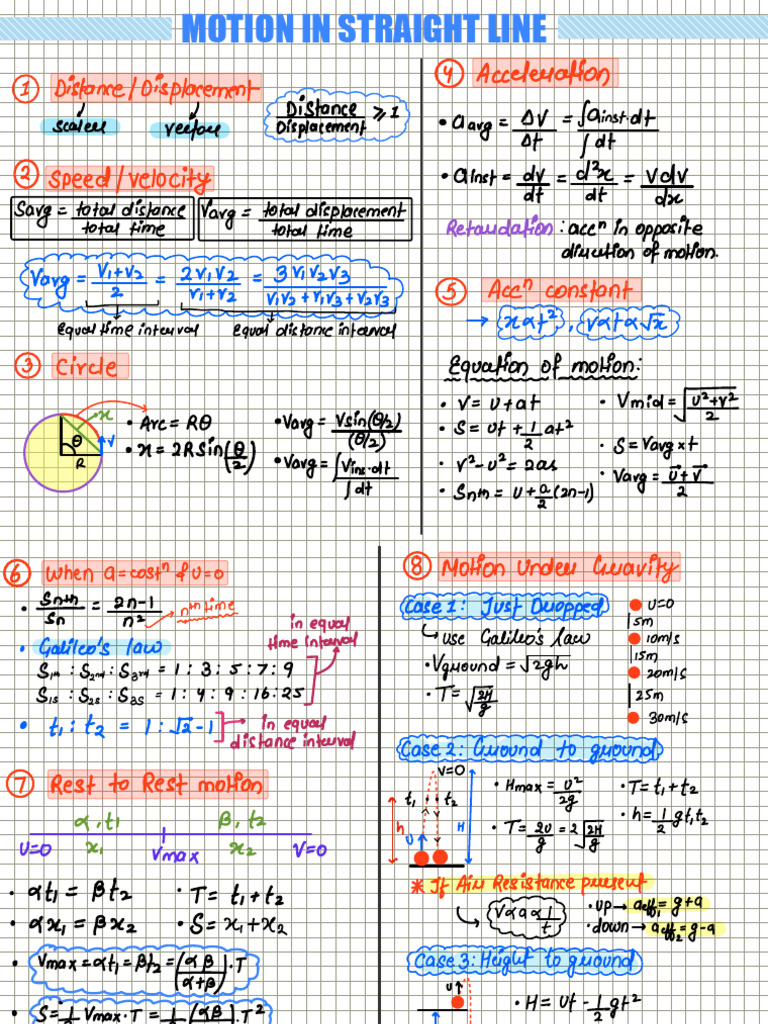 MOTION IN STRAIGHT LINE
① Distance/Displacement
scalar vector
Distance/Displacement ≥ 1
② Speed/velocity
Savg = total distance/total time
Varg = total displacement/total time
Varg = (V₁+V₂)/2 = 2V₁V₂/(V₁+V₂) = 3V₁V₂V₃/(V₁V₂+V₁V₃+V₂V₃)
Equal time interval Equal distance interval
③ Circle
x
θ
R
V
• Arc = Rθ
• x = 2R Sin(θ/2)
• Varg = V sin(θ/2)/(θ/2)
• Varg = ∫Vins·dt/∫dt
④ Acceleration
• aavg = ΔV/Δt = ∫ainst·dt/∫dt
• ainst = dv/dt = d²x/dt = Vdv/dx
Retardation : accⁿ in opposite
direction of motion.
⑤ Accⁿ constant
→ x∝t² , v∝t∝√x
Equation of motion:
• V = U+at
• S = Ut + 1/2 at²
• V²-U² = 2as
• Snth = U+a/2(2n-1)
• Vmid = √((U²+V²)/2)
• S = Varg × t
• Varg = (U+V)/2
⑥ When a = costⁿ & U=0
• Snth/Sn = (2n-1)/n² → nth time
• Galileo's law
S1th : S2nd : S3rd = 1 : 3 : 5 : 7 : 9
S1s : S2s : S3s = 1 : 4 : 9 : 16 : 25
in equal
time interval
• t₁ : t₂ = 1 : √2 - 1
in equal
distance interval
⑦ Rest to Rest motion
α, t₁ β, t₂
U=0 x₁ Vmax x₂ V=0
• αt₁ = βt₂
• T = t₁+t₂
• αx₁ = βx₂
• S = x₁+x₂
• Vmax = αt₁ = βt₂ = (αβ/(α+β))·T
• S = 1/2 Vmax·T = 1/2 (αβ)·T²
⑧ Motion Under Gravity
Case 1: Just Dropped
use Galileo's law
• Vground = √2gh
• T = √(2H/g)
U=0
5m
10m/s
15m
20m/s
25m
30m/s
Case 2: Ground to ground
V=0
t₁ t₂
h
U
H
• Hmax = U²/2g
• T = 2U/g = 2√(2H/g)
• T = t₁+t₂
• h = 1/2 gt₁t₂
* If Air Resistance present
V∝a∝1/t
• up → aeff₁ = g+a
• down → aeff₂ = g-a
Case 3: Height to ground
U
• H = Ut - 1/2 gt²